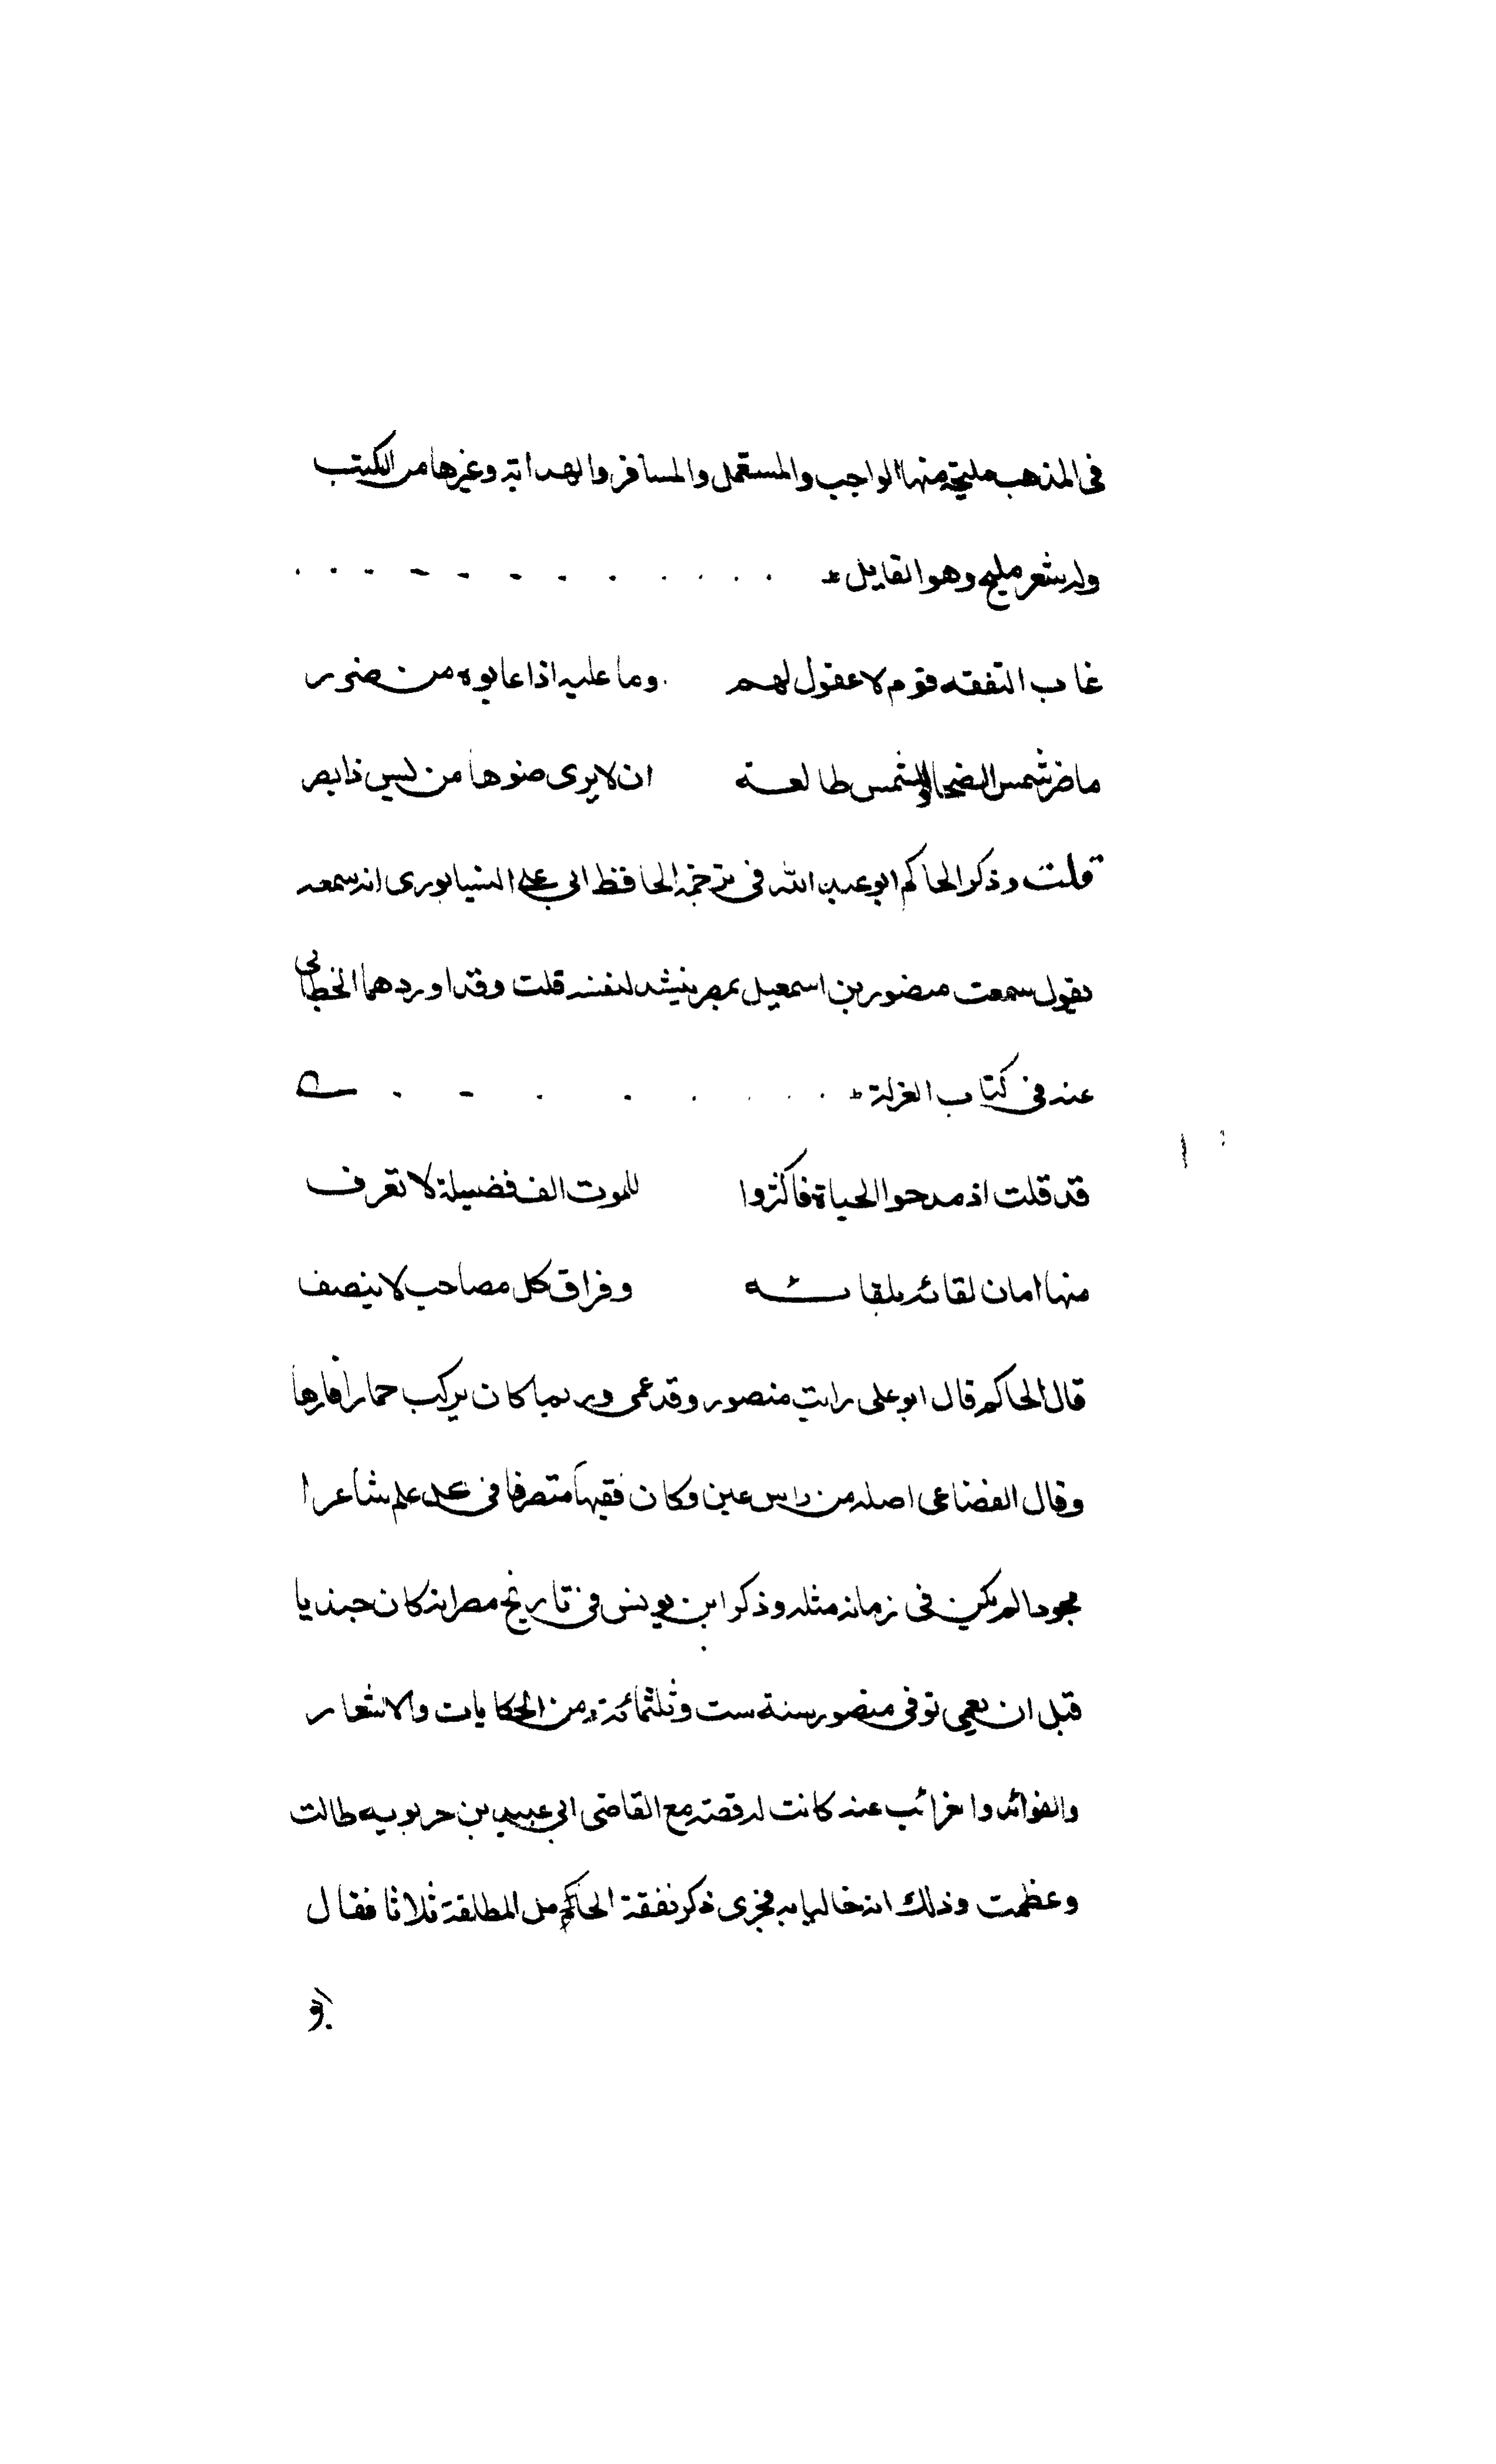 فى المذهب مليحة منها الواجب والمستعمل والمسافر والهداية وغيرها من الكتب
وله شعر مليح وهو القايل
غاب التفقه قوم لا عقول لهم وما عليه اذا عابوه من ضرر
ما ضر شمس الضحا والشمس طالعة ان لا يرى ضوها من ليس ذا بصر
قلت وذكر الحاكم ابو عبد الله فى ترجمة الحافظ ابى على النيسابورى انه سمعه
يقول سمعت منصور بن اسمعيل بمصر ينشد لنفسه قلت وقد اوردهما الخطابى
عنه فى كتاب العزلة
قد قلت اذ مدحوا الحياة فاكثروا للموت الف فضيلة لا تعرف
منها امان لقائه بلقائه وفراق كل مصاحب لا ينصف
قال الحاكم قال ابو على رايت منصور وقد عمى وربما كان يركب حمارا فارها
وقال القضاعى اصله من راس عين وكان فقيها متصرفا فى كل علم شاعرا
مجودا لم يكن فى زمانه مثله وذكر ابن يونس فى تاريخ مصر انه كان جنديا
قبل ان يعمى توفى منصور سنة ست وثلثمائة ومن الحكايات والاشعار
والفوائد والغرائب عنه كانت له قصة مع القاضى ابى عبيد بن حربويه طالت
وعظمت وذلك انه خاليا به فجرى ذكر نفقة الحامل المطلقة ثلاثا فقال